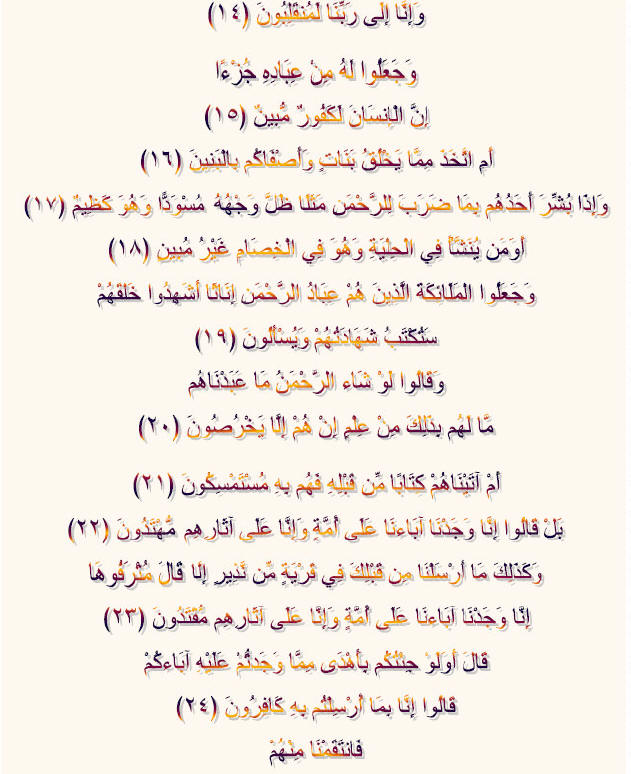 وَإِنَّا إِلَى رَبِّنَا لَمُنقَلِبُونَ (١٤)
وَجَعَلُوا لَهُ مِنْ عِبَادِهِ جُزْءًا
إِنَّ الْإِنسَانَ لَكَفُورٌ مُّبِينٌ (١٥)
أَمِ اتَّخَذَ مِمَّا يَخْلُقُ بَنَاتٍ وَأَصْفَاكُم بِالْبَنِينَ (١٦)
وَإِذَا بُشِّرَ أَحَدُهُم بِمَا ضَرَبَ لِلرَّحْمَنِ مَثَلًا ظَلَّ وَجْهُهُ مُسْوَدًّا وَهُوَ كَظِيمٌ (١٧)
أَوَمَن يُنَشَّأُ فِي الْحِلْيَةِ وَهُوَ فِي الْخِصَامِ غَيْرُ مُبِينٍ (١٨)
وَجَعَلُوا الْمَلَائِكَةَ الَّذِينَ هُمْ عِبَادُ الرَّحْمَنِ إِنَاثًا أَشَهِدُوا خَلْقَهُمْ
سَتُكْتَبُ شَهَادَتُهُمْ وَيُسْأَلُونَ (١٩)
وَقَالُوا لَوْ شَاء الرَّحْمَنُ مَا عَبَدْنَاهُم
مَّا لَهُم بِذَلِكَ مِنْ عِلْمٍ إِنْ هُمْ إِلَّا يَخْرُصُونَ (٢٠)
أَمْ آتَيْنَاهُمْ كِتَابًا مِّن قَبْلِهِ فَهُم بِهِ مُسْتَمْسِكُونَ (٢١)
بَلْ قَالُوا إِنَّا وَجَدْنَا آبَاءنَا عَلَى أُمَّةٍ وَإِنَّا عَلَى آثَارِهِم مُّهْتَدُونَ (٢٢)
وَكَذَلِكَ مَا أَرْسَلْنَا مِن قَبْلِكَ فِي قَرْيَةٍ مِّن نَّذِيرٍ إِلَّا قَالَ مُتْرَفُوهَا
إِنَّا وَجَدْنَا آبَاءنَا عَلَى أُمَّةٍ وَإِنَّا عَلَى آثَارِهِم مُّقْتَدُونَ (٢٣)
قَالَ أَوَلَوْ جِئْتُكُم بِأَهْدَى مِمَّا وَجَدتُّمْ عَلَيْهِ آبَاءكُمْ
قَالُوا إِنَّا بِمَا أُرْسِلْتُم بِهِ كَافِرُونَ (٢٤)
فَانتَقَمْنَا مِنْهُمْ